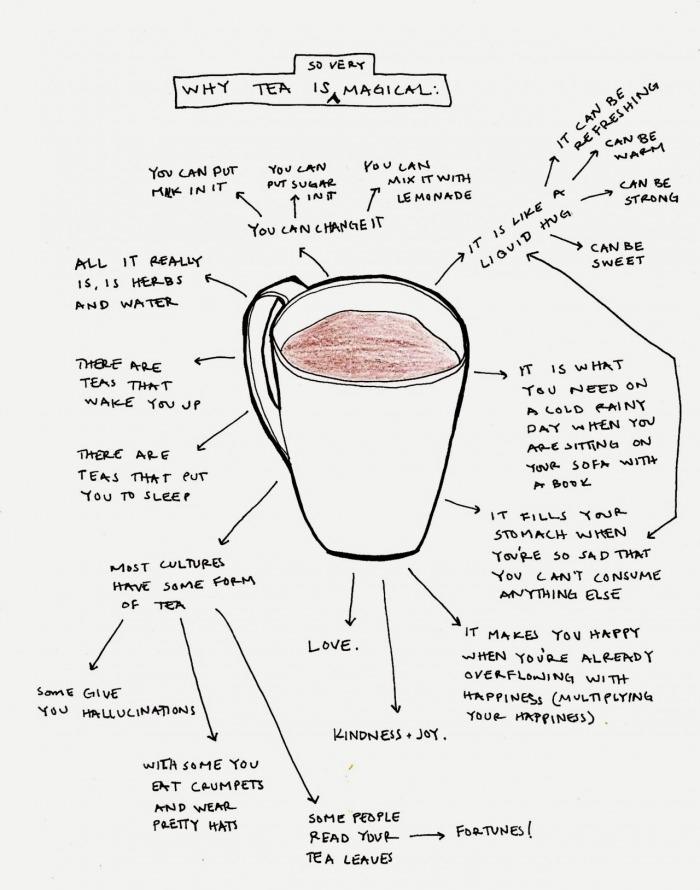 SO VERY
WHY TEA IS MAGICAL:
YOU CAN PUT
MILK IN IT
YOU CAN
PUT SUGAR
IN IT
YOU CAN
MIX IT WITH
LEMONADE
YOU CAN CHANGE IT
IT IS LIKE A
LIQUID HUG
IT CAN BE
REFRESHING
CAN BE
WARM
CAN BE
STRONG
CAN BE
SWEET
ALL IT REALLY
IS, IS HERBS
AND WATER
THERE ARE
TEAS THAT
WAKE YOU UP
THERE ARE
TEAS THAT PUT
YOU TO SLEEP
IT IS WHAT
YOU NEED ON
A COLD RAINY
DAY WHEN YOU
ARE SITTING ON
YOUR SOFA WITH
A BOOK
IT FILLS YOUR
STOMACH WHEN
YOU'RE SO SAD THAT
YOU CAN'T CONSUME
ANYTHING ELSE
MOST CULTURES
HAVE SOME FORM
OF TEA
SOME GIVE
YOU HALLUCINATIONS
WITH SOME YOU
EAT CRUMPETS
AND WEAR
PRETTY HATS
SOME PEOPLE
READ YOUR
TEA LEAVES
FORTUNES!
LOVE.
KINDNESS + JOY.
IT MAKES YOU HAPPY
WHEN YOU'RE ALREADY
OVERFLOWING WITH
HAPPINESS (MULTIPLYING
YOUR HAPPINESS)